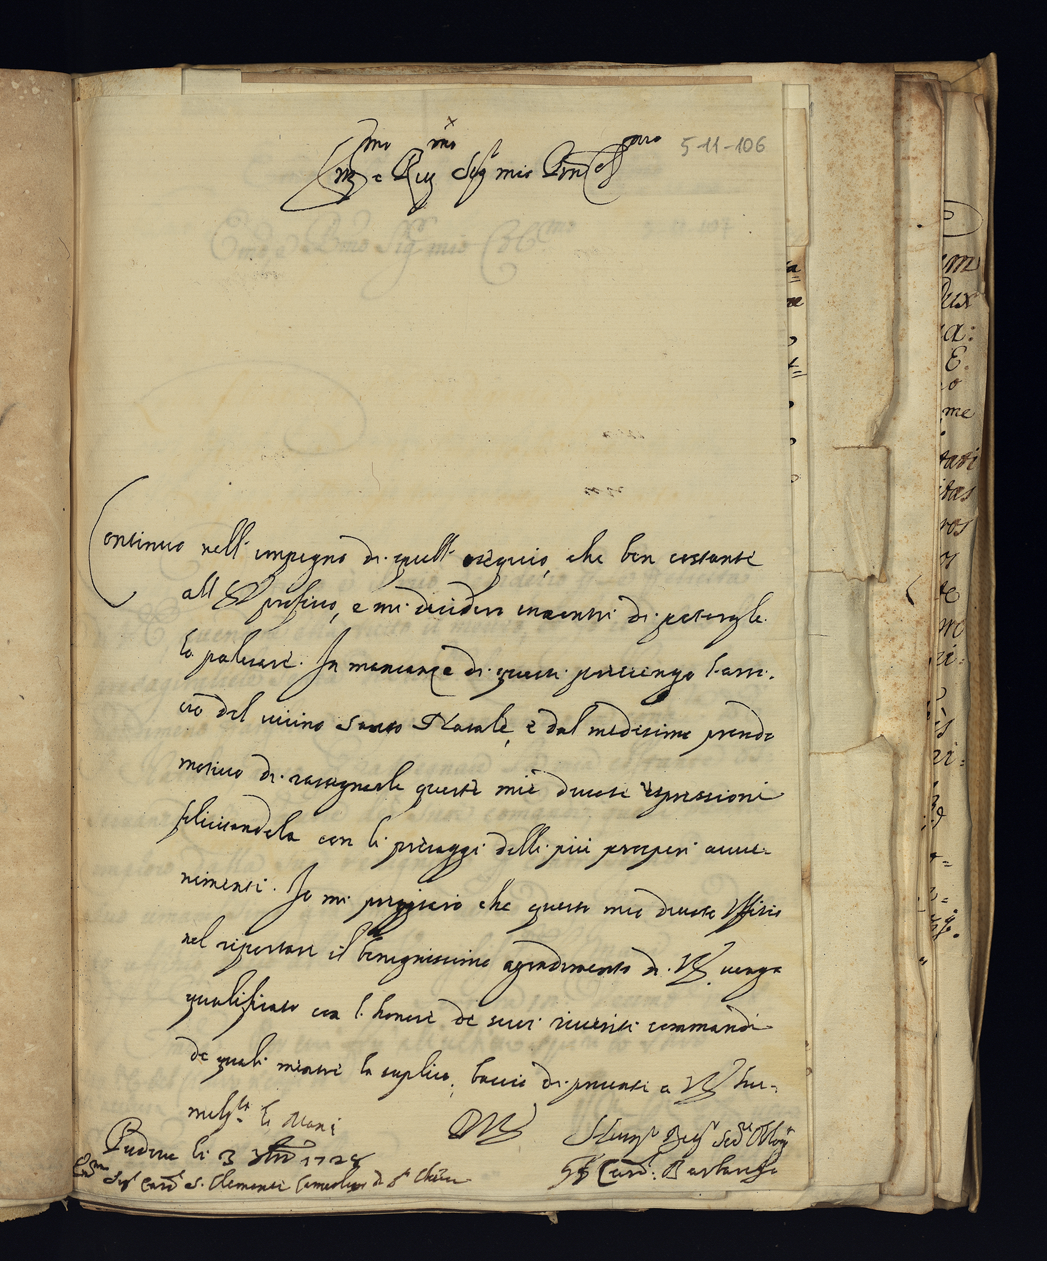 5-11-106
Em.mo e R.mo Sig.r mio P.ron Col.mo
Continuo nell' impegno di quell' ossequio, che ben costante
all' E.V. professo, e mi desidero incontri di poterglie
lo palesare. In mancanza di questi prevengo l' arri-
vo del vicino Santo Natale, e dal medesimo prendo
motivo di rassegnarle queste mie devote espressioni
felicitandola con li presaggi delli più prosperi avve-
nimenti. Io mi preggierò che questo mio devoto Uffitio
nel riportare il benignissimo agradimento di V.E. venga
qualificato con l' honore de suoi riveriti commandi
de quali mentre la suplico, baccio di presente a V.E. hu-
milm.te le Mani
Padova li 3 Xbre 1728
Di V.E.
Em.mo Sig.r Card. S. Clemente Camerlengo di S.ta Chiesa
Humil.mo Dev.mo Ser.re Oblig.mo
Card: Barbarigo